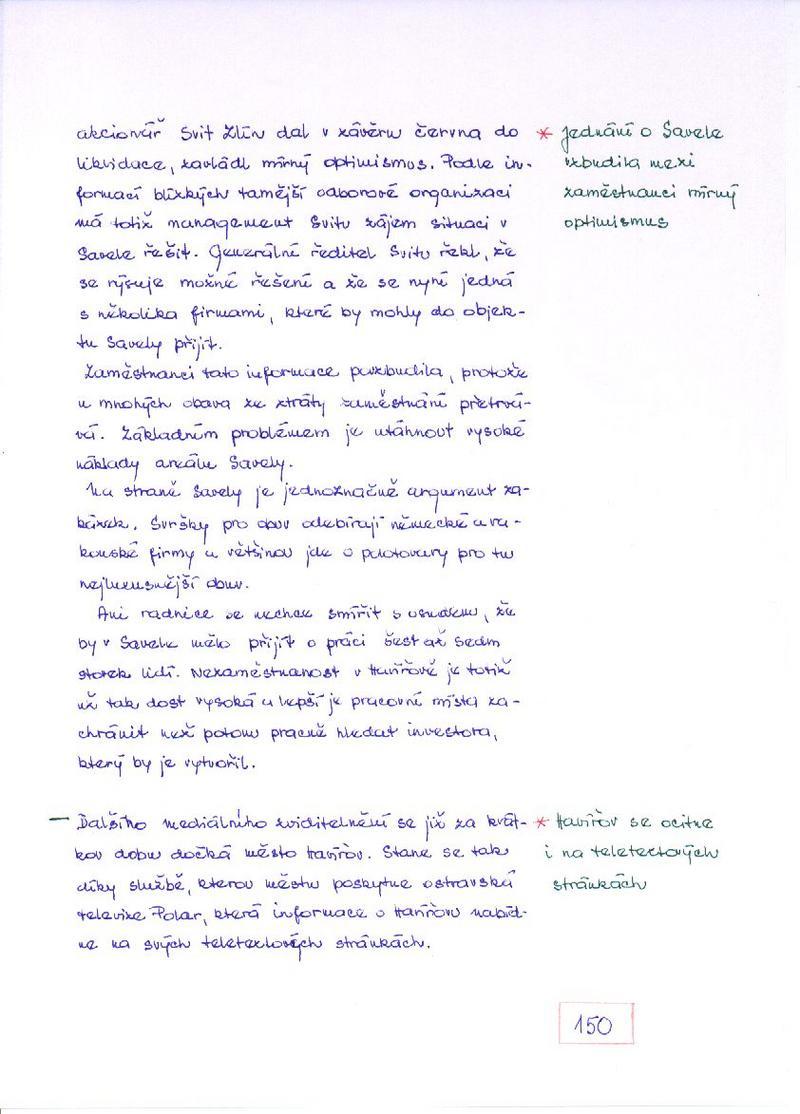 akcionář Svit Zlín dal v závěru června do
likvidace, zavládl mírný optimismus. Podle in-
formací blízkých tamější odborové organizaci
má totiž management Svitu zájem situaci v
Savele řešit. Generální ředitel Svitu řekl, že
se rýsuje možné řešení a že se nyní jedná
s několika firmami, které by mohly do objek-
tu Savely přijít.
Zaměstnanci tato informace povzbudila, protože
u mnohých obava ze ztráty zaměstnání přetrvá-
vá. Základním problémem je utáhnout vysoké
náklady areálu Savely.
Na straně Savely je jednoznačně argument za-
kázek. Svršky pro obuv odebírají německé a ra-
kouské firmy a většinou jde o polotovary pro tu
nejluxusnější obuv.
Ani radnice se nechce smířit s osudem, že
by v Savele mělo přijít o práci šest až sedm
stovek lidí. Nezaměstnanost v Havířově je totiž
už tak dost vysoká a lepší je pracovní místa za-
chránit než potom pracně hledat investora,
který by je vytvořil.
* Jednání o Savele
vzbudila mezi
zaměstnanci mírný
optimismus
— Dalšího mediálního zviditelnění se již za krát-
kou dobu dočká město Havířov. Stane se tak
díky službě, kterou městu poskytne ostravská
televize Polar, která informace o Havířovu nabíd-
ne na svých teletextových stránkách.
* Havířov se ocitne
i na teletextových
stránkách
150